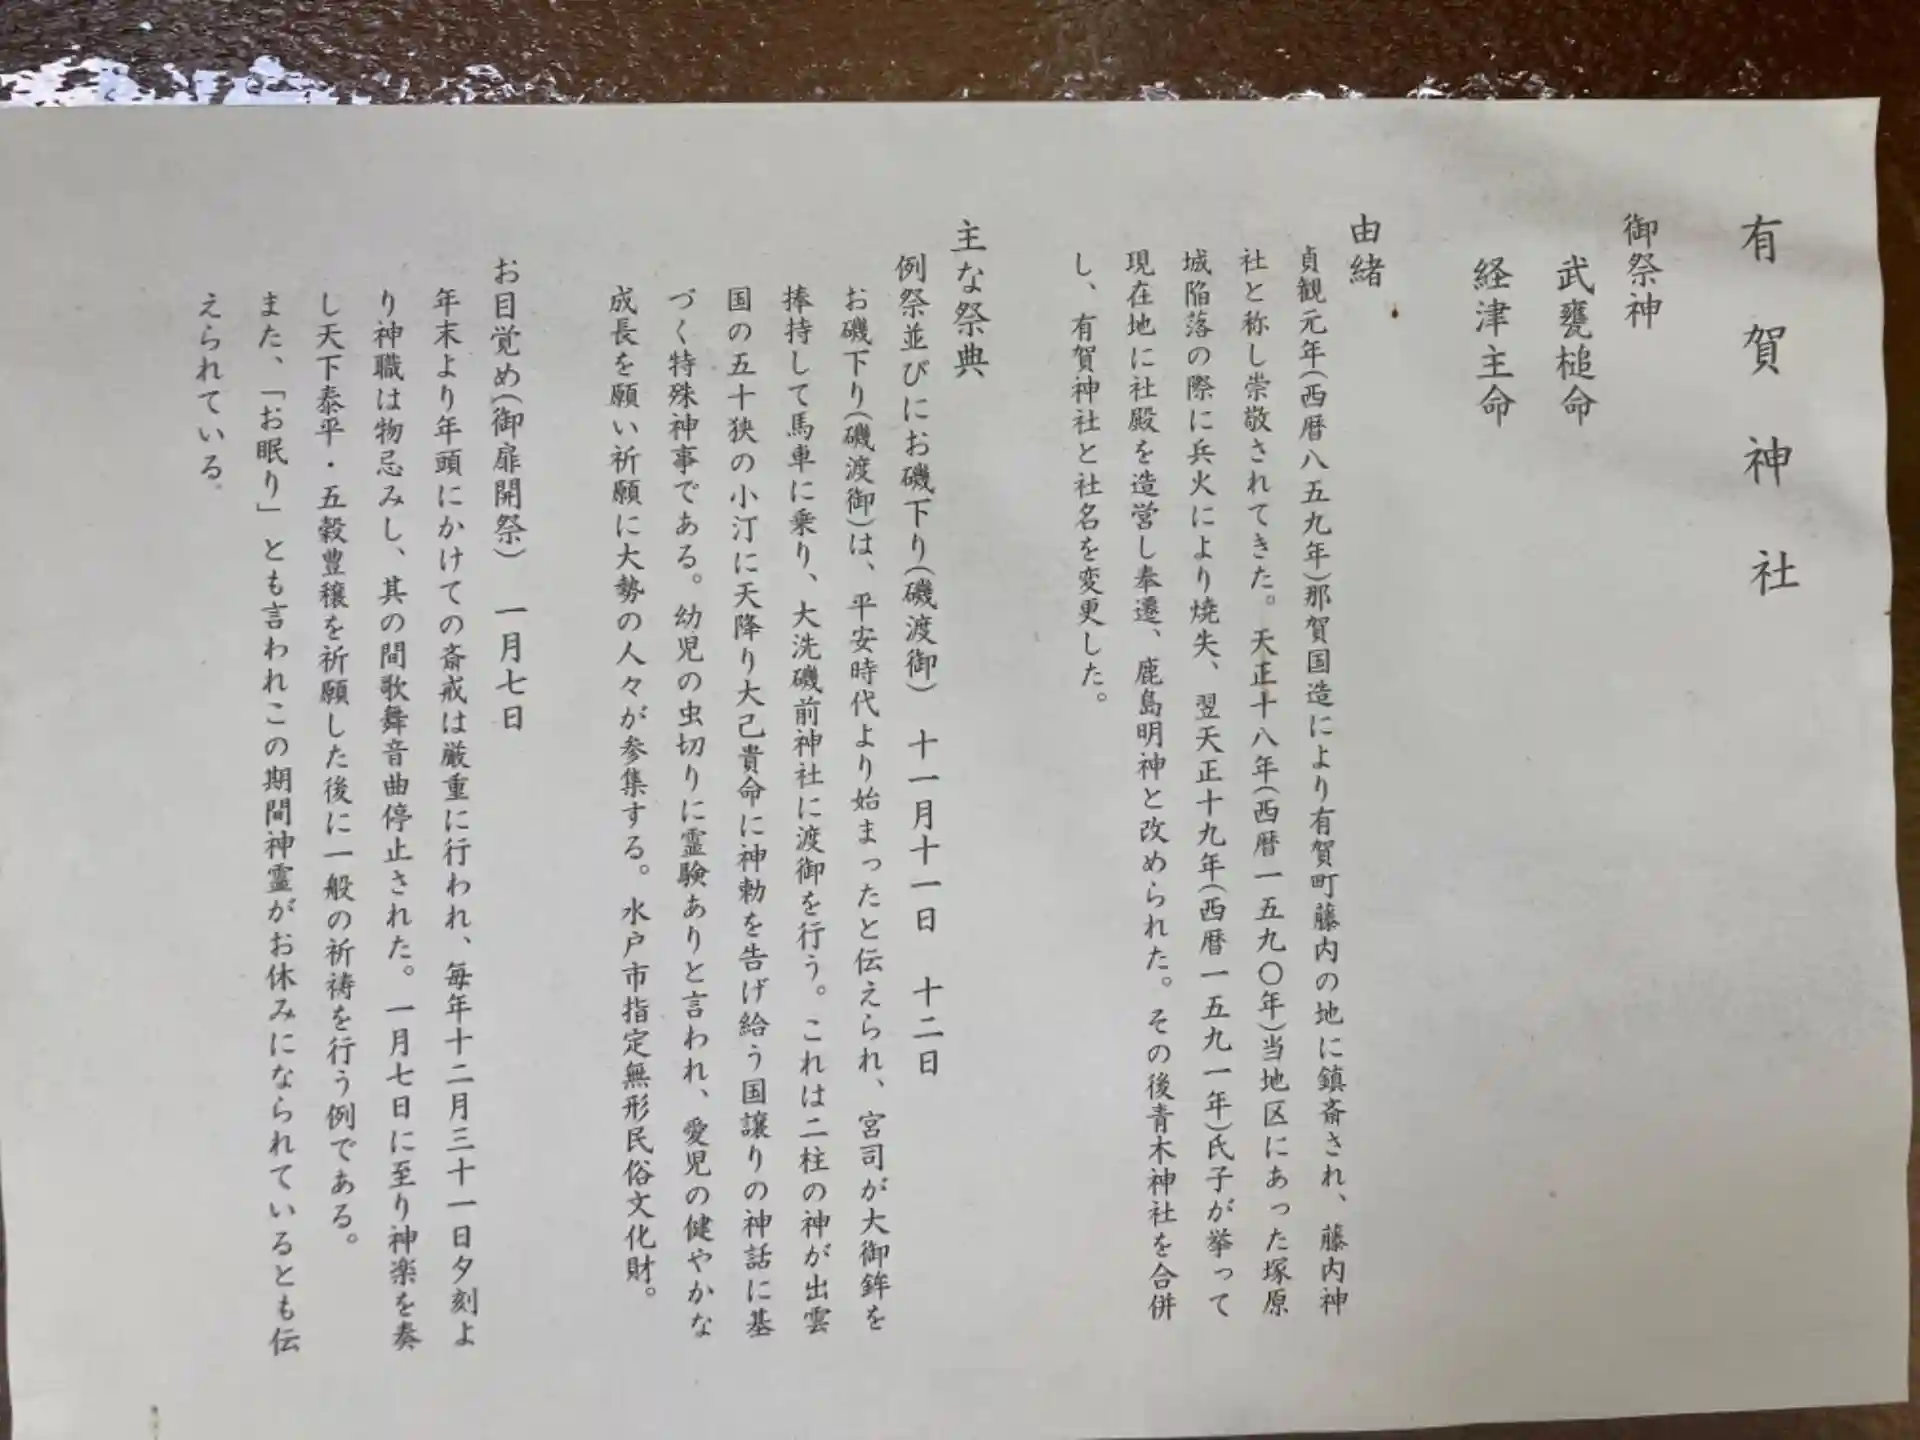 有賀神社
御祭神
武甕槌命
経津主命
由緒
貞観元年(西暦八五九年)那賀国造により有賀町藤内の地に鎮斎され、藤内神
社と称し崇敬されてきた。天正十八年(西暦一五九〇年)当地区にあった塚原
城陥落の際に兵火により焼失、翌天正十九年(西暦一五九一年)氏子が挙って
現在地に社殿を造営し奉遷、鹿島明神と改められた。その後青木神社を合併
し、有賀神社と社名を変更した。
主な祭典
例祭並びにお磯下り(磯渡御) 十一月十一日 十二日
お磯下り(磯渡御)は、平安時代より始まったと伝えられ、宮司が大御鉾を
捧持して馬車に乗り、大洗磯前神社に渡御を行う。これは二柱の神が出雲
国の五十狭の小汀に天降り大己貴命に神勅を告げ給う国譲りの神話に基
づく特殊神事である。幼児の虫切りに霊験ありと言われ、愛児の健やかな
成長を願い祈願に大勢の人々が参集する。水戸市指定無形民俗文化財。
お目覚め(御扉開祭) 一月七日
年末より年頭にかけての斎戒は厳重に行われ、毎年十二月三十一日夕刻よ
り神職は物忌みし、其の間歌舞音曲停止された。一月七日に至り神楽を奏
し天下泰平・五穀豊穣を祈願した後に一般の祈祷を行う例である。
また、「お眠り」とも言われこの期間神霊がお休みになられているとも伝
えられている。